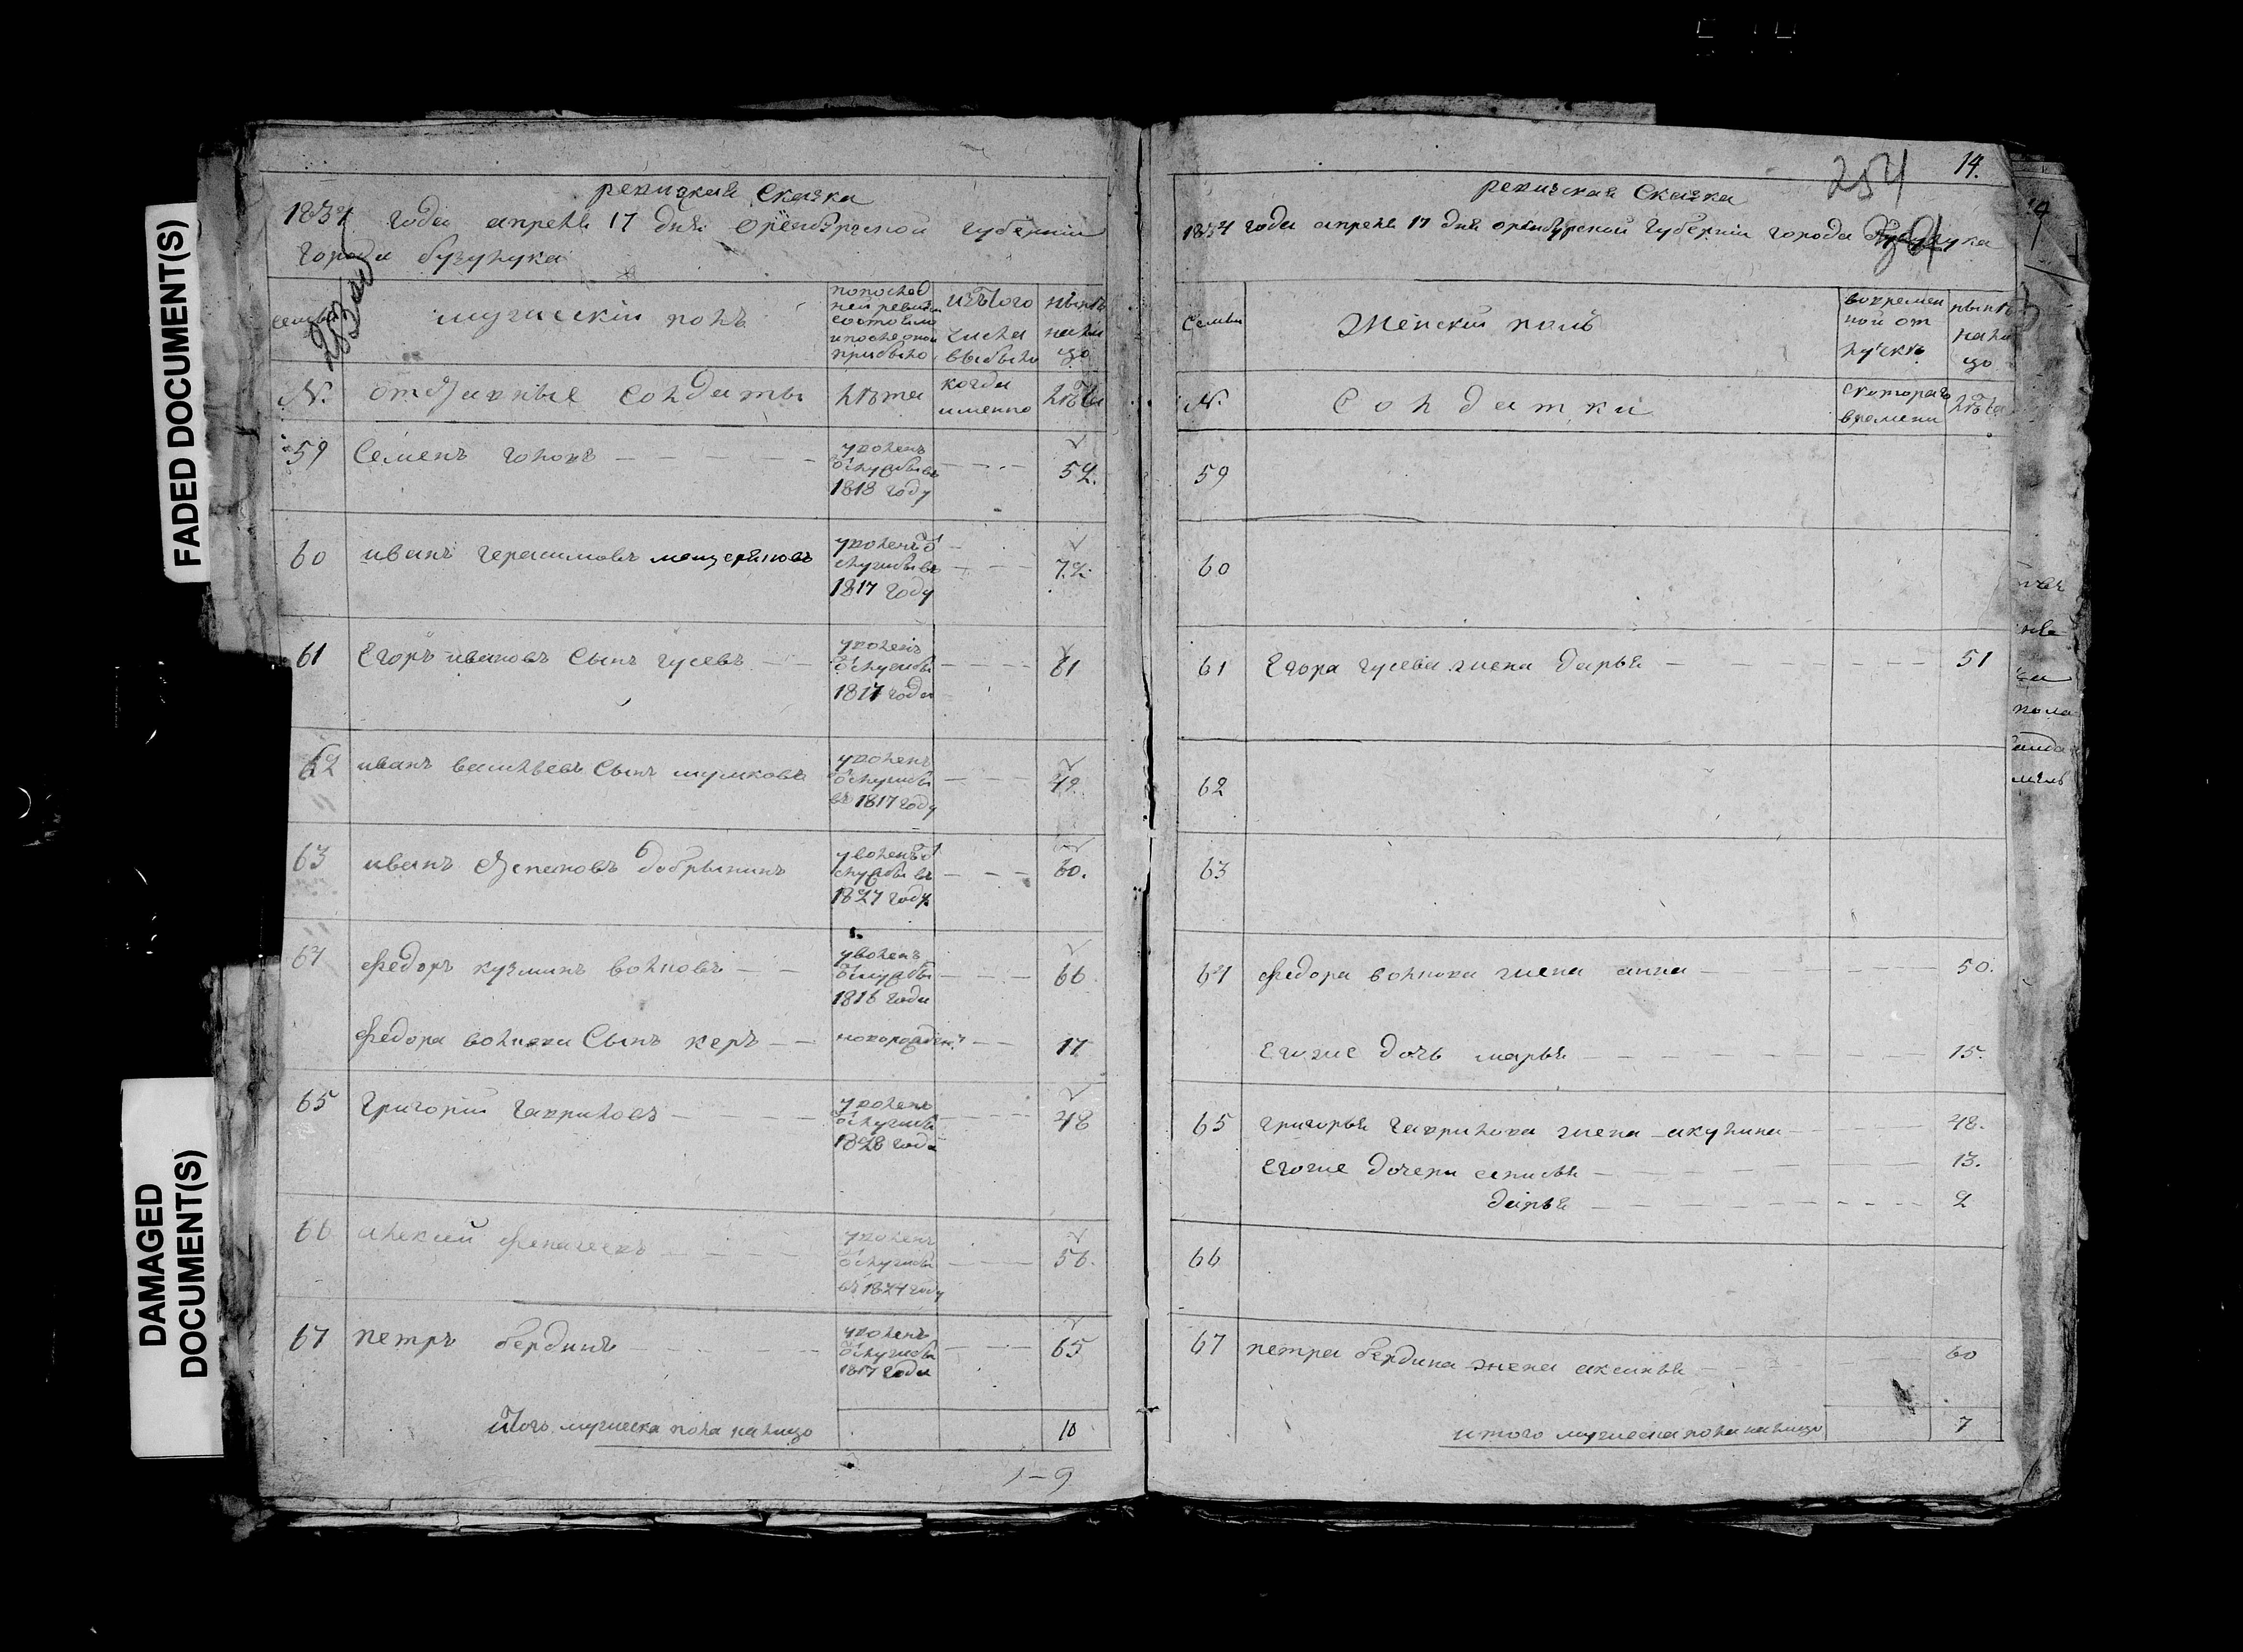 FADED DOCUMENT(S)
DAMAGED DOCUMENT(S)
ревизкая Сказка
1834 года апреля 17 дня оренбургской губернии
города бузулука
семьи
мужискій полъ
попослед
ней ревизіи
состояло
ипосле оной
прибыло
изътого
числа
выбыло
нынѣ
нали
цо
№.
отставные Солдаты
лѣта
когда
именно
лѣта
59 Семенъ
уволенъ
1818 году
52.
60 иванъ герасимовъ мещеряковъ
уволенъ
службы въ
1817 году
72.
61 Егоръ ивановъ Сынъ гусевъ
уволенъ
службы
1817 года
61
62 иванъ васильевъ Сынъ шумковъ
уволенъ
службы
въ 1817 году
63 иванъ Степановъ добрынинъ
уволенъ
службы въ
60.
64 федоръ кузминъ волковъ
уволенъ
службы
1816 года
66
федора волкова Сынъ
новорожден:
17
65 Григорій Гавриловъ
уволенъ
службы
1828 года
48
66 алексей
уволенъ
службы
56.
67 петръ бердинъ
уволенъ
службы
1817 года
65
Итого мужиска пола налицо 10
1-9
254
14.
ревизская Сказка
1834 года апреля 17 дня оренбурской Губерніи города бузулука
Семьи
Женскій полъ
вовремен
ной от
лучкѣ
нынѣ
нали
цо
№.
Солдатки
скотораго
времени
лѣта
59
60
61 Егора гусева жена дарья 51
62
63
64 федора волкова жена анна 50.
Егоже дочь марья 15.
65 григорья Гаврилова жена акулина 48.
Егоже дочери 13.
дарья 2
66
67 петра бердина жена аксинья 60
итого мужиска пола налицо 7